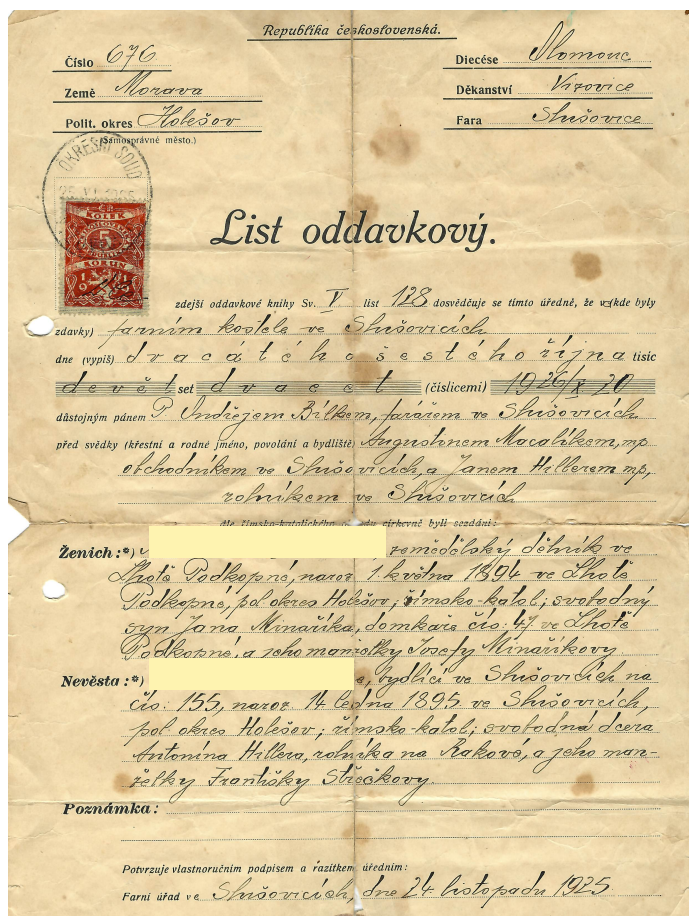 Republika československá.
Číslo 676
Diecése Olomouc
Země Morava
Děkanství Vizovice
Polit. okres Holešov
Fara Slušovice
(Samosprávné město.)
OKRESNÍ SOUD
KOLEK
5
KORUN
List oddavkový.
zdejší oddavkové knihy Sv. V list 128 dosvědčuje se tímto úředně, že v (kde byly
zdavky) farním kostele ve Slušovicích
dne (vypiš) dvacátého šestého října tisíc
devět set dvacet (číslicemi) 1926/X 20
důstojným pánem P. Ondřejem Bílkem, farářem ve Slušovicích
před svědky (křestní a rodné jméno, povolání a bydliště) Augustinem Macalíkem, mp
obchodníkem ve Slušovicích, a Janem Hillerem mp,
rolníkem ve Slušovicích
dle římsko-katolického církevně byli sezdáni:
Ženich:*) , zemědělský dělník ve
Lhotě Podkopné, naroz. 1. května 1894 ve Lhotě
Podkopné, pol. okres Holešov; římsko-katol; svobodný
syn Jana Minaříka, domkaře čís: 47 ve Lhotě
Podkopné, a jeho manželky Josefy Minaříkovy
Nevěsta:*) e, bydlící ve Slušovicích na
čís: 155, naroz. 14 ledna 1895 ve Slušovicích,
pol. okres Holešov; římsko-katol; svobodná dcera
Antonína Hillera, rolníka na Rakové, a jeho man-
želky Františky Střečkovy.
Poznámka:
Potvrzuje vlastnoručním podpisem a razítkem úředním:
Farní úřad ve Slušovicích, dne 24. listopadu 1925